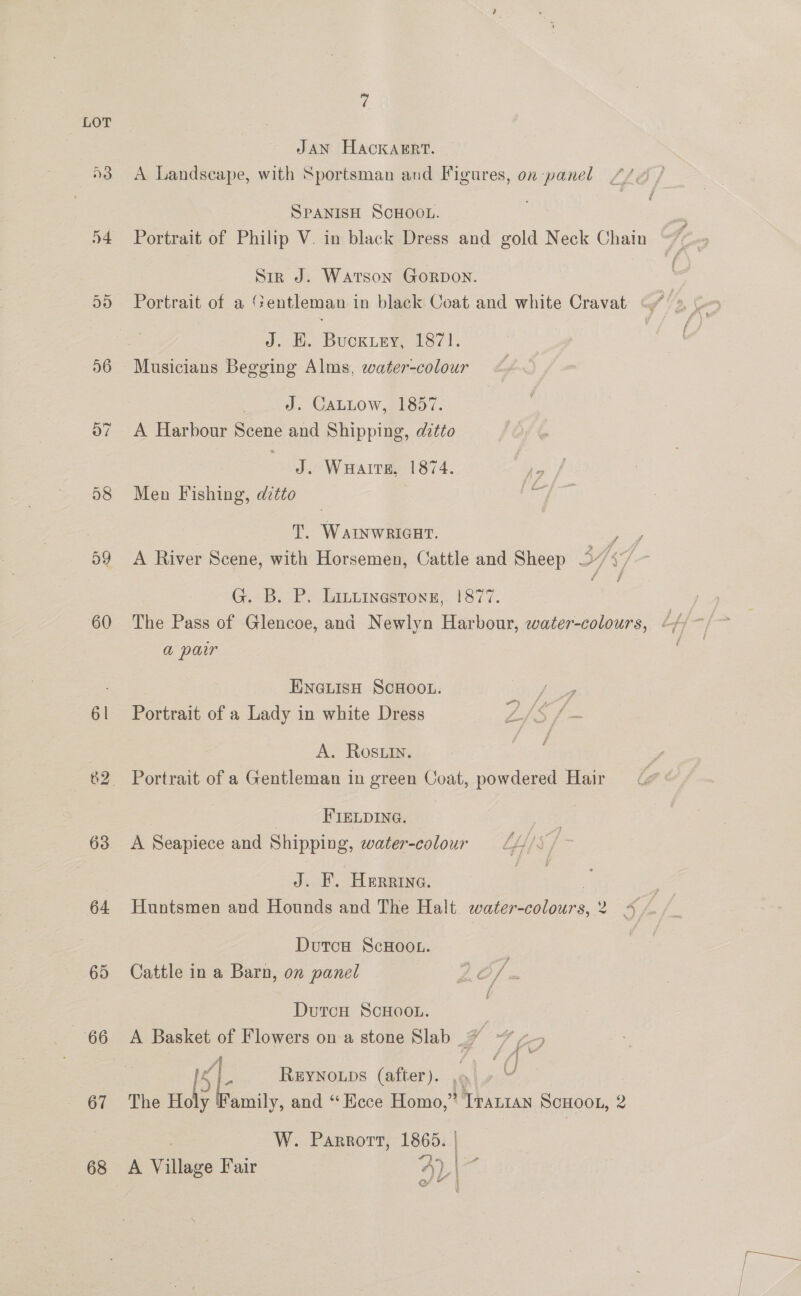 7
LOT
JAN HACKAERT.
53 A Landscape, with Sportsman and Figures, on panel
SPANISH SCHOOL.
54 Portrait of Philip V. in black Dress and gold Neck Chain
SIR J. WATSON GORDON.
55 Portrait of a Gentleman in black Coat and white Cravat
J. E. BUCKLEY, 1871.
56 Musicians Begging Alms, water-colour
J. CALLOW, 1857.
57 A Harbour Scene and Shipping, ditto
J. WHAITE, 1874.
58 Men Fishing, ditto
T. WAINWRIGHT.
59 A River Scene, with Horsemen, Cattle and Sheep
G. B. P. LILLINGSTONE, 1877.
60 The Pass of Glencoe, and Newlyn Harbour, water-colours,
a pair
ENGLISH SCHOOL.
61 Portrait of a Lady in white Dress 2/5/-
A. ROSLIN.
62 Portrait of a Gentleman in green Coat, powdered Hair
FIELDING.
63 A Seapiece and Shipping, water-colour
J. F. HERRING.
64 Huntsmen and Hounds and The Halt water-colours, 2
DUTCH SCHOOL.
65 Cattle in a Barn, on panel
DUTCH SCHOOL.
66 A Basket of Flowers on a stone Slab
REYNOLDS (after).
67 The Holy Family, and “Ecce Homo,” ITALIAN SCHOOL, 2
W. PARROTT, 1865.
68 A Village Fair